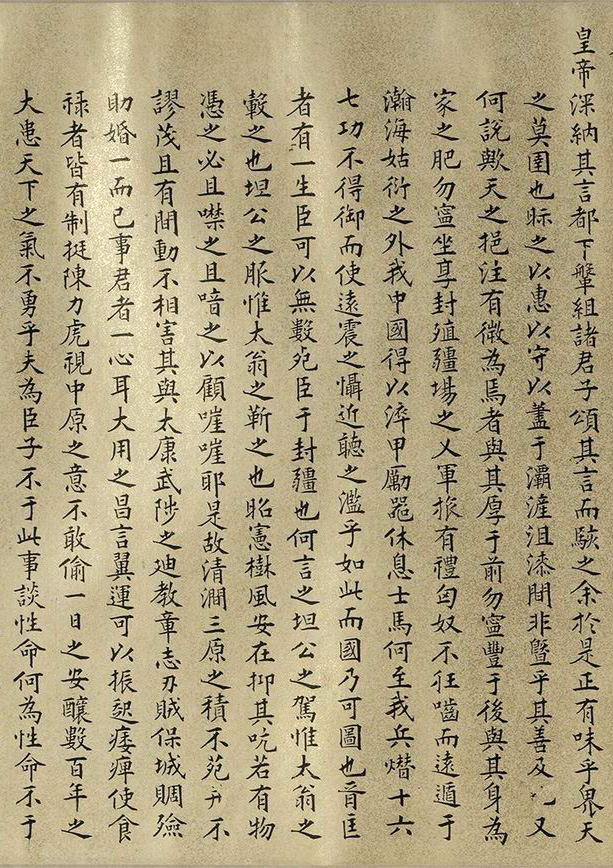 皇帝深納其言都下犖組諸君子頌其言而駭之余於是正有味乎昦天
之莫圉也眎之以惠以守以蓋于灞滻沮漆閒非曁乎其善及又
何說歟天之挹注有微為焉者與其厚于前勿寍豐于後與其身為
家之肥勿寍坐享封殖疆場之乂軍旅有禮匈奴不狂嚙而遠遁于
瀚海姑衍之外我中國得以淬甲勵噐休息士馬何至我兵熸十六
七功不得御而使遠震之懾近聼之濫乎如此而國乃可圖也晉匡
者有一生臣可以無數死臣于封疆也何言之坦公之駕惟太翁之
轂之也坦公之服惟太翁之靳之也昭憲樹風安在抑其吭若有物
憑之必且噤之且喑之以顧嘊嘊耶是故清澗三原之積不苑不
謬茂且有間動不相害其與太康武陟之迪教章志刃賊保城賙殮
助婚一而已事君者一心耳大用之昌言翼運可以振起痿痺使食
祿者皆有制挺陳力虎視中原之意不敢偷一日之安釀數百年之
大患天下之氣不勇乎夫為臣子不于此事談性命何為性命不于